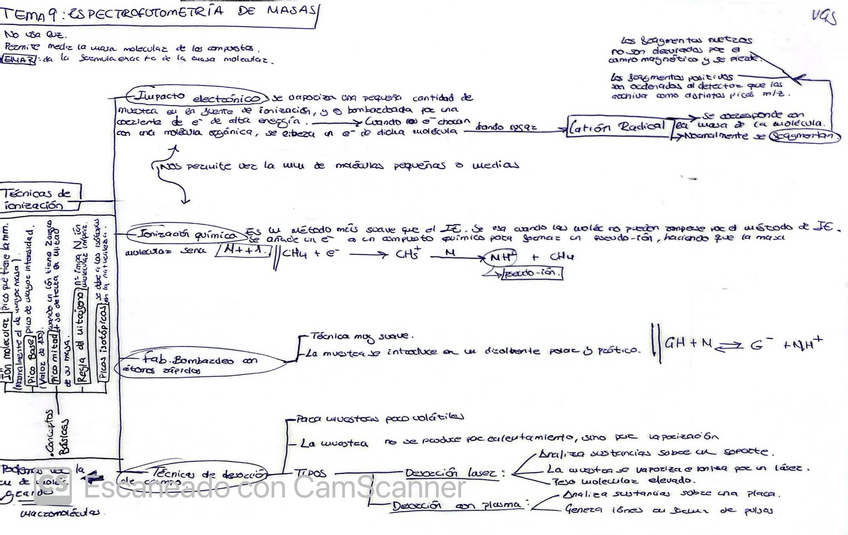 TEMA 9: ESPECTROFOTOMETRÍA DE MASAS
VGS
No usa luz.
Permite medir la masa molecular de los compuestos.
EMAR: da la fórmula exacta de la masa molecular.
Los fragmentos neutros
no son desviados por el
campo magnético y se pierde.
Los fragmentos positivos
son acelerados al detector que los
archiva como distintos picos m/z.
Impacto electrónico se vaporiza una pequeña cantidad de
muestra en la fuente de ionización, y es bombardeada por una
corriente de e- de alta energía. Cuando los e- chocan
con una molécula orgánica, se libera un e- de dicha molécula dando lugar
Catión Radical
Se corresponde con
la masa de la molécula.
Normalmente se fragmentan
Nos permite ver la mm de moléculas pequeñas o medias
Técnicas de
ionización
Ionización química Es un método más suave que el IE. Se usa cuando las moléc no pueden romperse por el método de IE.
se añade un e- a un compuesto químico para formar un pseudo-ión, haciendo que la masa
molecular sería M++1. CH4 + e- → CH5+ M → MH+ + CH4
Pseudo-ión.
Ión molecular pico que tiene la mm.
(normalmente el de mayor masa).
Pico Base pico de mayor intensidad.
Pico mitad cuando un ión tiene 2 cargas
+ se detecta en mitad
de su masa.
Regla del nitrógeno nº impar N, ión
molecular impar.
Picos isotópicos se debe a los isótopos
en la naturaleza.
Conceptos
Básicos
Fab. Bombardeo con
átomos rápidos
Técnica muy suave.
La muestra se introduce en un disolvente polar y prótico.
GH + M ⇌ G- + MH+
Técnicas de desorción
de campo
Para muestras poco volátiles
La muestra no se produce por calentamiento, sino por vaporización
TIPOS
Desorción laser:
Analiza sustancias sobre un soporte.
La muestra se vaporiza e ioniza por un láser.
Peso molecular elevado.
Desorción con plasma:
Analiza sustancias sobre una placa.
Genera iones en forma de pulsos
Podemos ver la
grandes
macromoléculas.
CS Escaneado con CamScanner